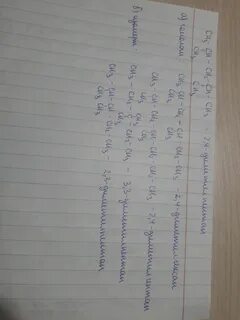 CH₃-CH-CH₂-CH-CH₃ - 2,4-диметилпентан
CH₃ CH₃
а) гомологи:
CH₃-CH-CH₂-CH-CH₂-CH₃ - 2,4-диметилгексан
CH₃ CH₃
CH₃-CH-CH₂-CH-CH₂-CH₂-CH₃ - 2,4-диметилгептан
CH₃ CH₃
б) изомеры:
CH₃
CH₃-CH₂-C-CH₂-CH₃ - 3,3-диметилпентан
CH₃
CH₃-CH-CH-CH₂-CH₃ - 2,3-диметилпентан
CH₃ CH₃